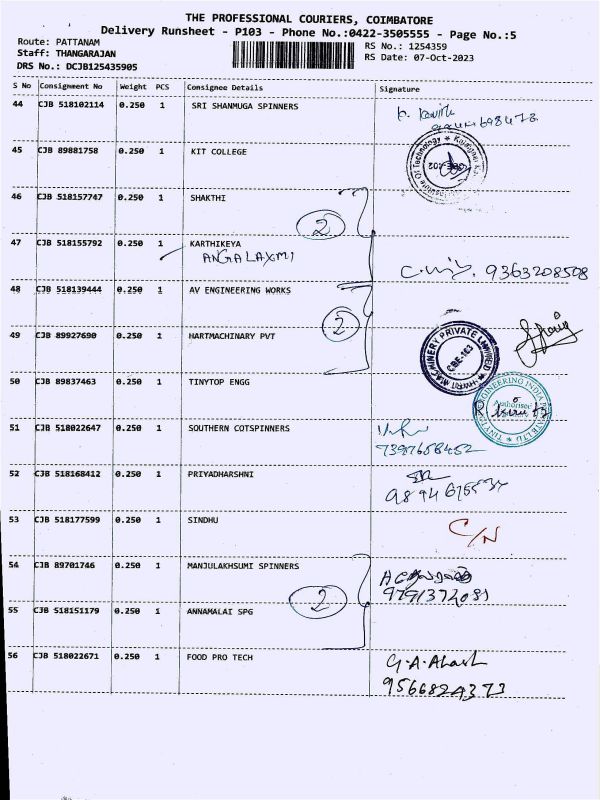 THE PROFESSIONAL COURIERS, COIMBATORE
Delivery Runsheet - P103 - Phone No.:0422-3505555 - Page No.:5
Route: PATTANAM
RS No.: 1254359
Staff: THANGARAJAN
RS Date: 07-Oct-2023
DRS No.: DCJB125435905
S No Consignment No Weight PCS Consignee Details Signature
44 CJB 518102114 0.250 1 SRI SHANMUGA SPINNERS
45 CJB 89881758 0.250 1 KIT COLLEGE
46 CJB 518157747 0.250 1 SHAKTHI
2
47 CJB 518155792 0.250 1 KARTHIKEYA
ANGALAXMI
9363208508
48 CJB 518139444 0.250 1 AV ENGINEERING WORKS
2
49 CJB 89927690 0.250 1 HARTMACHINARY PVT
MACHINERY PRIVATE LIMITED
CBE-163
50 CJB 89837463 0.250 1 TINYTOP ENGG
ENGINEERING INDIA
Authorised
51 CJB 518022647 0.250 1 SOUTHERN COTSPINNERS
7397658452
52 CJB 518168412 0.250 1 PRIYADHARSHNI
53 CJB 518177599 0.250 1 SINDHU
C/N
54 CJB 89701746 0.250 1 MANJULAKHSUMI SPINNERS
9791372081
2
55 CJB 518151179 0.250 1 ANNAMALAI SPG
56 CJB 518022671 0.250 1 FOOD PRO TECH
G.A.Akash
9566824373